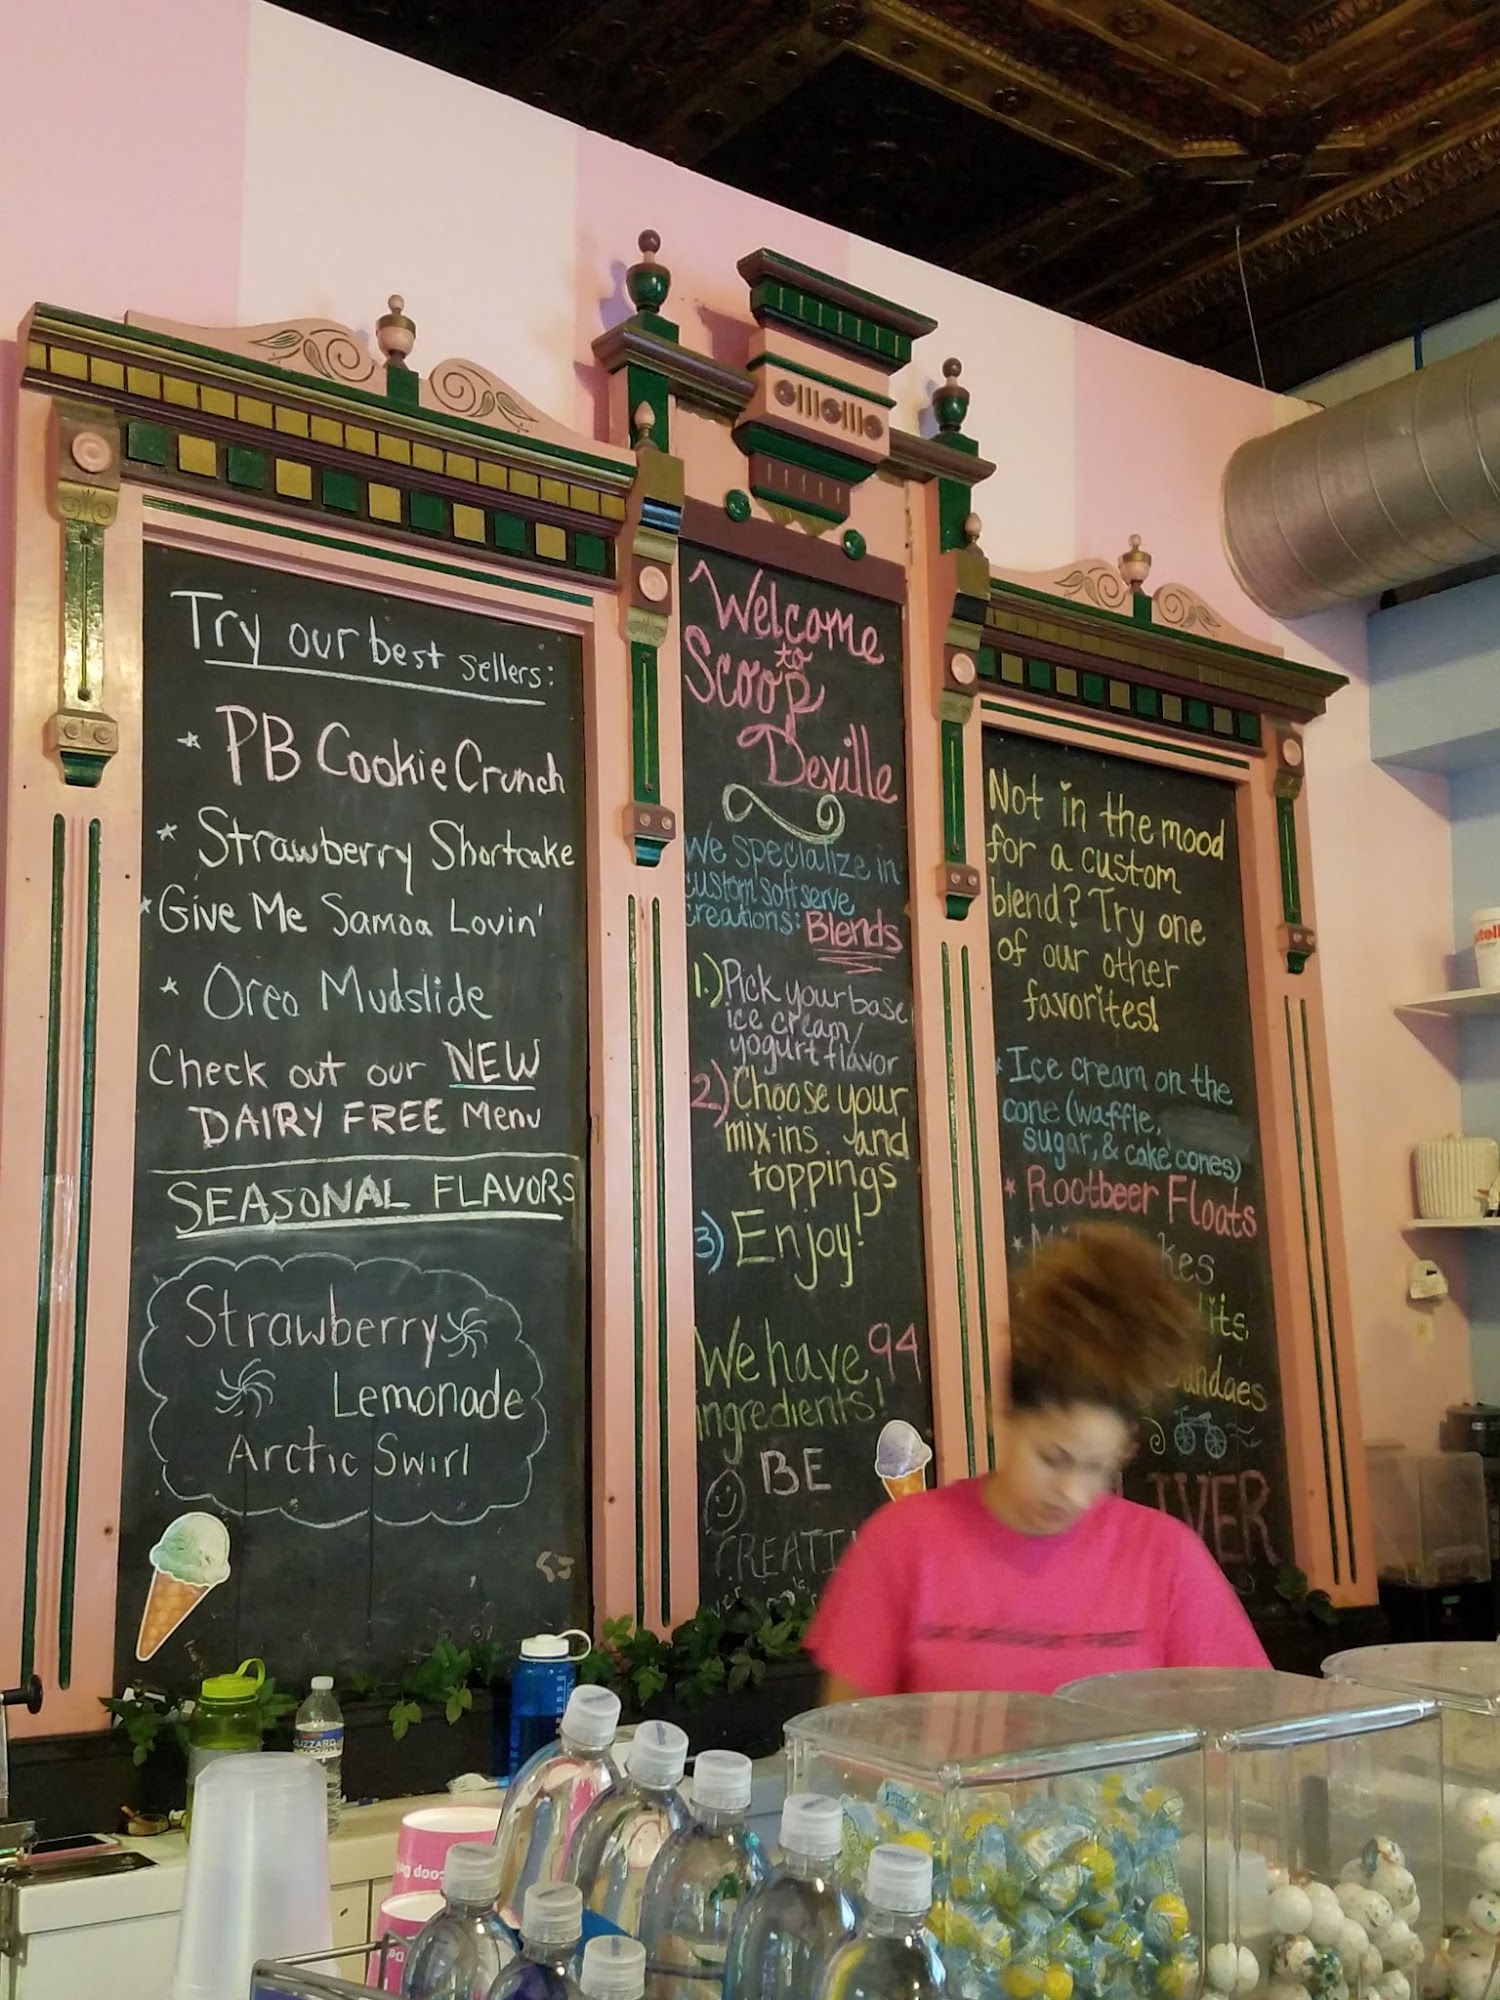 Try our best sellers:
* PB Cookie Crunch
* Strawberry Shortcake
* Give Me Samoa Lovin'
* Oreo Mudslide
Check out our NEW
DAIRY FREE Menu
SEASONAL FLAVORS
Strawberry
Lemonade
Arctic Swirl
Welcome
to
Scoop
Deville
We specialize in
custom soft serve
creations: Blends
1.) Pick your base
ice cream/
yogurt flavor
2.) Choose your
mix-ins and
toppings
3) Enjoy!
We have 94
ingredients!
BE
Not in the mood
for a custom
blend? Try one
of our other
favorites!
* Ice cream on the
cone (waffle,
sugar, & cake cones)
* Rootbeer Floats